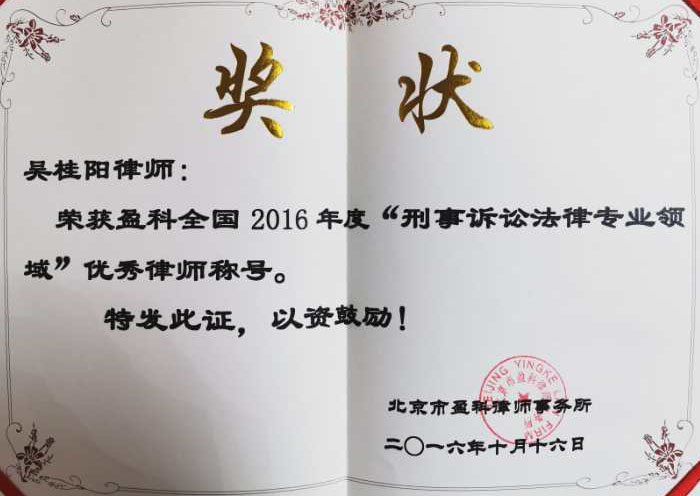 奖状
吴桂阳律师：
荣获盈科全国2016年度“刑事诉讼法律专业领
域”优秀律师称号。
特发此证，以资鼓励！
BEIJING YINGKE LAW FIRM
北京市盈科律师事务所
北京市盈科律师事务所
二〇一六年十月十六日